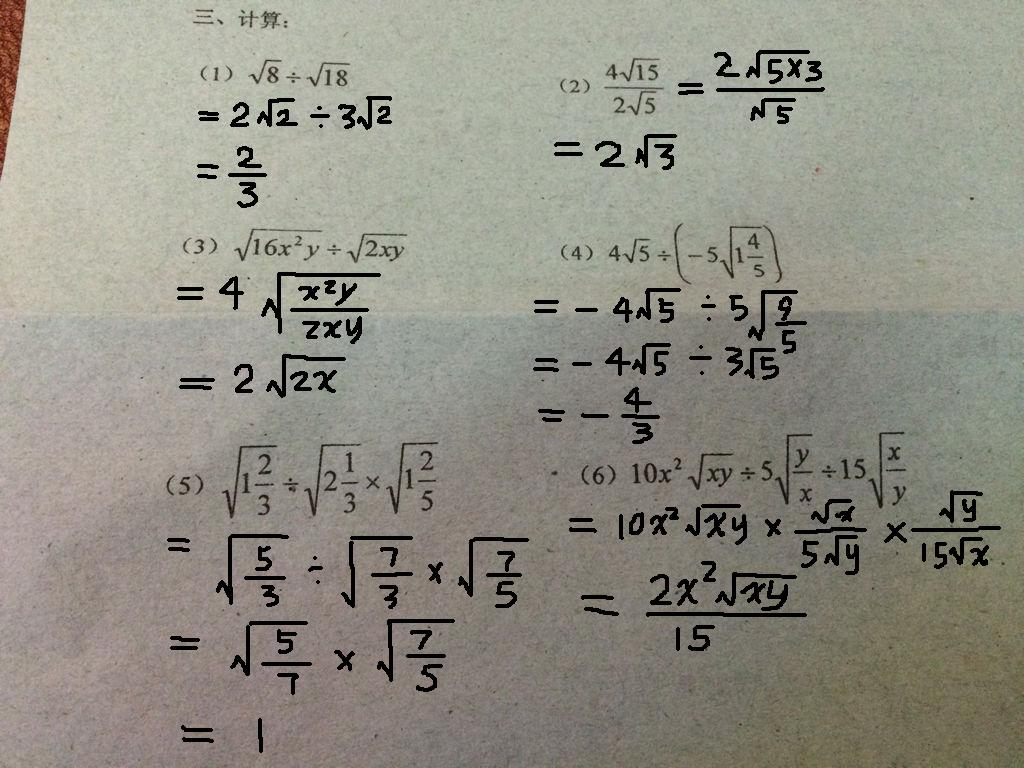 三、计算:
(1) √8÷√18
= 2√2 ÷ 3√2
= 2/3
(2) 4√15/2√5 = 2√5×3/√5
= 2√3
(3) √16x²y÷√2xy
= 4√(x²y/2xy)
= 2√2x
(4) 4√5÷(-5√(1 4/5))
= - 4√5 ÷ 5√(9/5)
= - 4√5 ÷ 3√5
= - 4/3
(5) √(1 2/3)÷√(2 1/3)×√(1 2/5)
= √(5/3) ÷ √(7/3) × √(7/5)
= √(5/7) × √(7/5)
= 1
(6) 10x²√xy÷5√(y/x)÷15√(x/y)
= 10x²√xy × √x/5√y × √y/15√x
= 2x²√xy/15